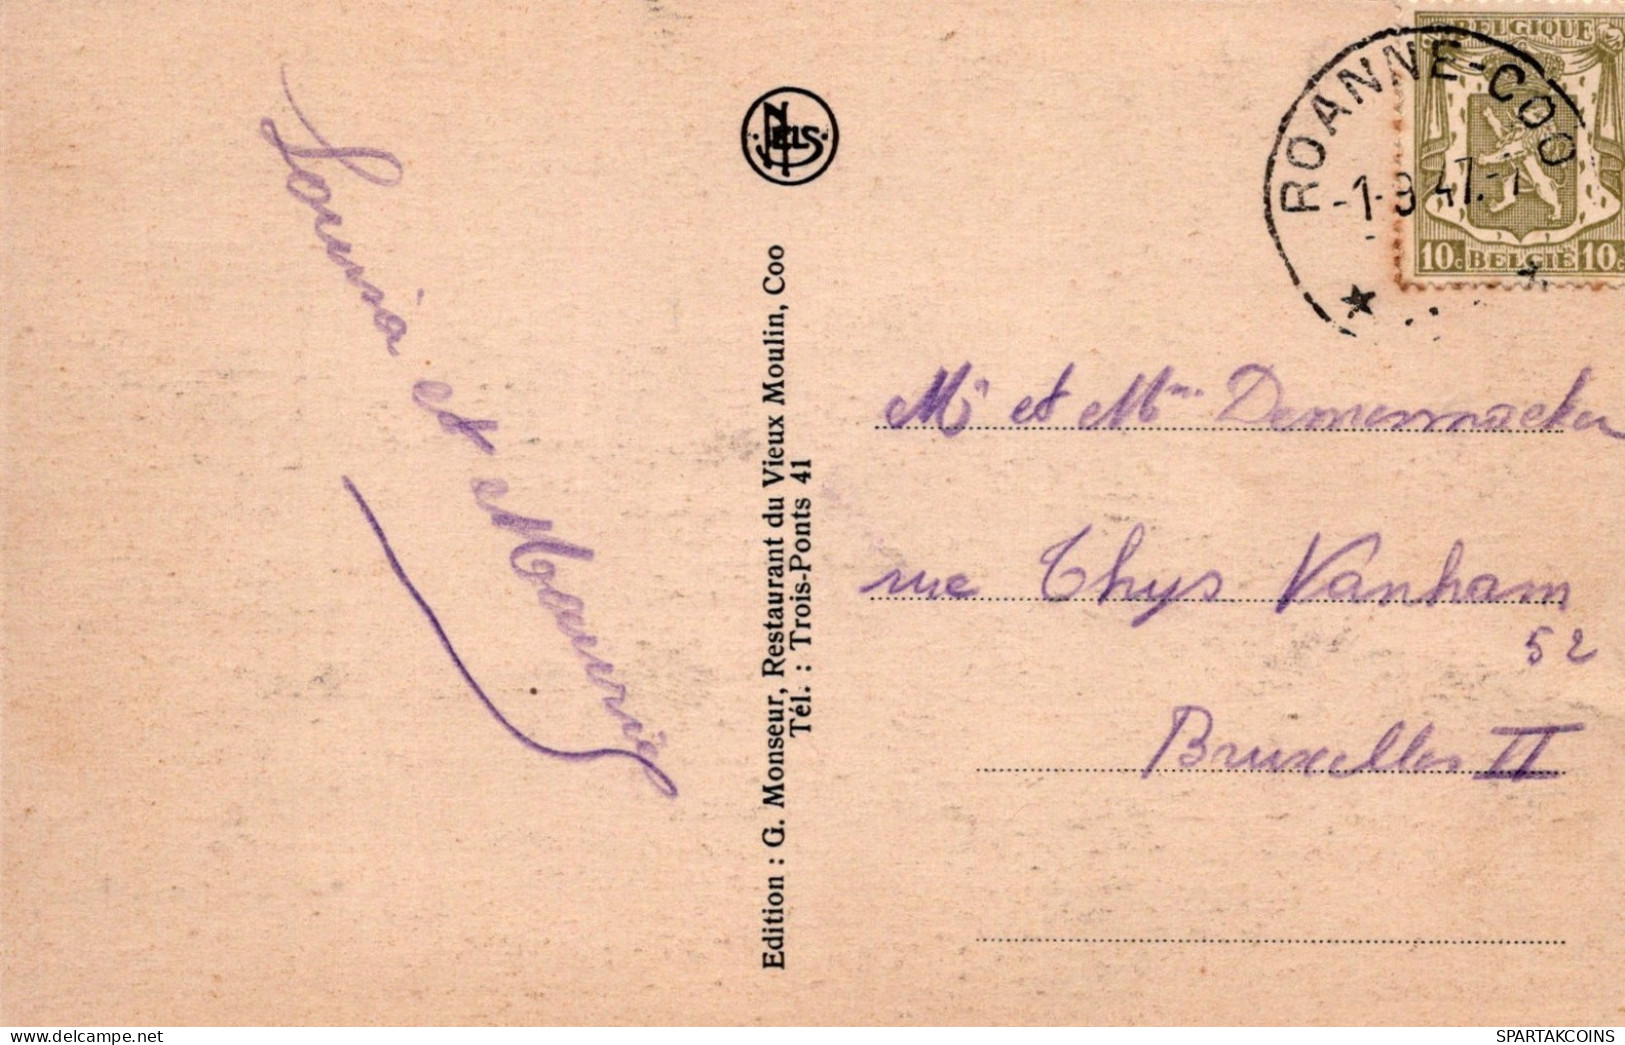 et Maurice
NELS
Edition : G. Monseur, Restaurant du Vieux Moulin, Coo
Tél. : Trois-Ponts 41
BELGIQUE
10c BELGIË 10c
ROANNE-COO
-1-9 47.-7
Mr et Mme
rue Thys Vanham
52
Bruxelles II
delcampe.net
SPARTAKCOINS